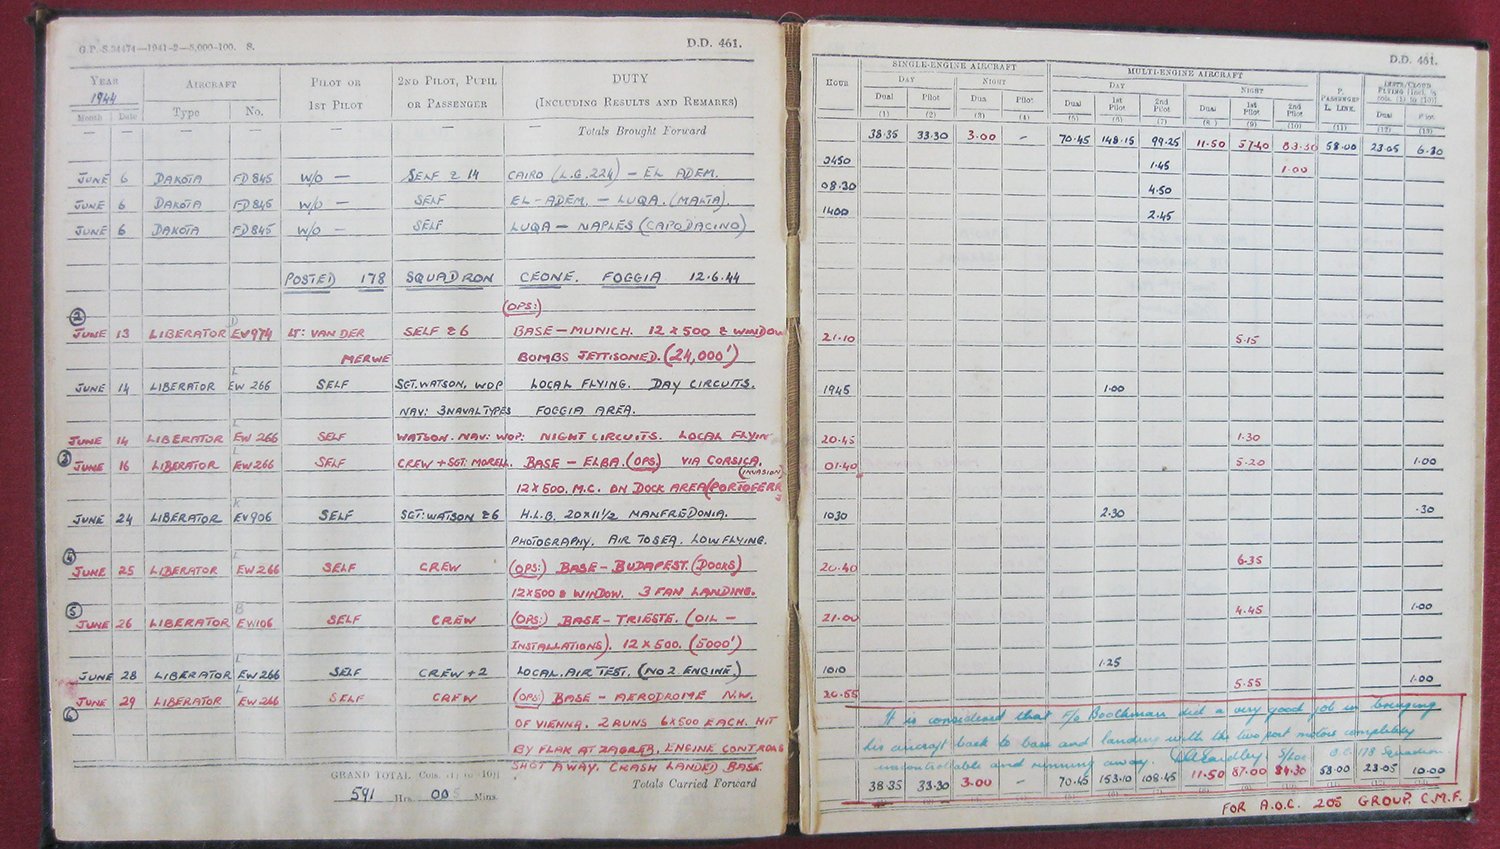 G.P.-S.34474—1941-2—5,000-100. S.
D.D. 461.
YEAR 1944 AIRCRAFT PILOT OR 1ST PILOT 2ND PILOT, PUPIL OR PASSENGER DUTY (INCLUDING RESULTS AND REMARKS)
Month Date Type No.
— — — — — — Totals Brought Forward
JUNE 6 DAKOTA FD 845 W/O — SELF & 14 CAIRO (L.G. 224) — EL ADEM.
JUNE 6 DAKOTA FD 845 W/O — SELF EL-ADEM. — LUQA. (MALTA).
JUNE 6 DAKOTA FD 845 W/O — SELF LUQA — NAPLES (CAPODACINO)
POSTED 178 SQUADRON CEONE. FOGGIA 12.6.44
(OPS:)
2
JUNE 13 LIBERATOR EV974 LT: VAN DER SELF & 6 BASE — MUNICH. 12 x 500 & WINDOW
MERWE BOMBS JETTISONED. (24,000')
L
JUNE 14 LIBERATOR EW 266 SELF SGT. WATSON, WOP LOCAL FLYING. DAY CIRCUITS.
NAV: 3 NAVAL TYPES FOGGIA AREA.
L
JUNE 14 LIBERATOR EW 266 SELF WATSON. NAV: WOP: NIGHT CIRCUITS. LOCAL FLYIN
3 L
JUNE 16 LIBERATOR EW266 SELF CREW + SGT: MORELL. BASE — ELBA. (OPS) VIA CORSICA.
(INVASION)
12 x 500. M.C. ON DOCK AREA (PORTOFERR
JUNE 24 LIBERATOR EV906 SELF SGT: WATSON & 6 H.L.B. 20 x 11½ MANFREDONIA.
PHOTOGRAPHY. AIR TO SEA. LOW FLYING.
4 L
JUNE 25 LIBERATOR EW266 SELF CREW (OPS:) BASE — BUDAPEST. (DOCKS)
12 x 500 & WINDOW. 3 FAN LANDING.
5 B
JUNE 26 LIBERATOR EW106 SELF CREW (OPS:) BASE — TRIESTE. (OIL —
INSTALLATIONS). 12 x 500. (5000')
L
JUNE 28 LIBERATOR EW266 SELF CREW + 2 LOCAL AIR TEST. (NO 2 ENGINE.)
L
JUNE 29 LIBERATOR EW266 SELF CREW (OPS) BASE — AERODROME N.W.
6
OF VIENNA. 2 RUNS 6 x 500 EACH. HIT
BY FLAK AT ZAGREB. ENGINE CONTROLS
SHOT AWAY. CRASH LANDED BASE.
GRAND TOTAL Cols. (1) to (10)
591 Hrs. 00 Mins.
Totals Carried Forward
D.D. 461.
HOUR SINGLE-ENGINE AIRCRAFT MULTI-ENGINE AIRCRAFT PASSENGER LINK. FLYING [Incl. in cols. (1) to (10)]
DAY NIGHT DAY NIGHT
Dual Pilot Dual Pilot Dual 1st Pilot 2nd Pilot Dual 1st Pilot 2nd Pilot Dual Pilot
(1) (2) (3) (4) (5) (6) (7) (8) (9) (10) (11) (12) (13)
38.35 33.30 3.00 — 70.45 148.15 99.25 11.50 57.40 83.30 58.00 23.05 6.30
0450 1.45 1.00
08.30 4.50
1400 2.45
21.10 5.15
1945 1.00
20.45 1.30
01.40 5.20 1.00
1030 2.30 .30
20.40 6.35
21.00 4.45 1.00
1010 1.25
20.55 5.55 1.00
It is considered that F/O Boothman did a very good job in bringing
his aircraft back to base and landing with the two port motors completely
uncontrollable and running away. S/Ldr O.C. 178 Squadron
38.35 33.30 3.00 — 70.45 153.10 108.45 11.50 87.00 84.30 58.00 23.05 10.00
FOR A.O.C. 205 GROUP. C.M.F.